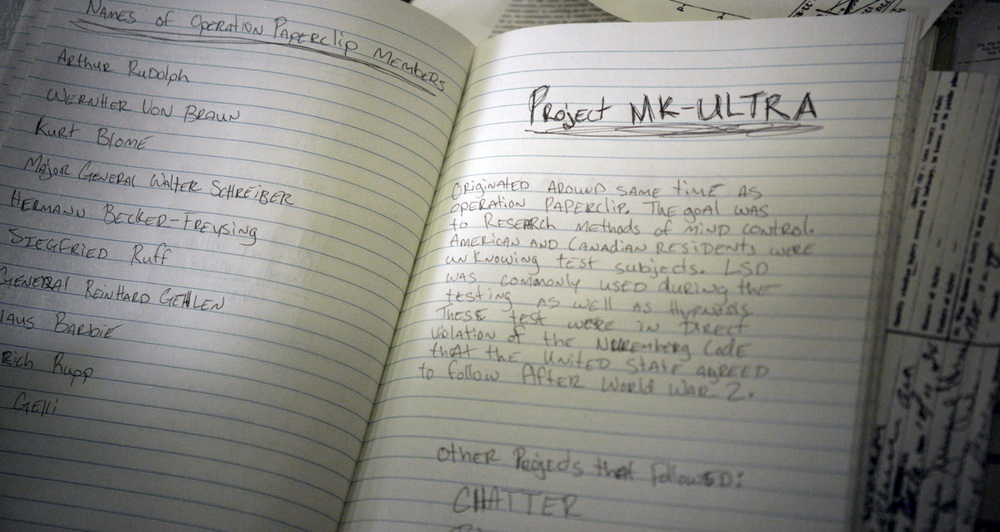 Names of Operation Paperclip Members
Arthur Rudolph
Wernher Von Braun
Kurt Blome
Major General Walter Schreiber
Hermann Becker-Freysing
Siegfried Ruff
General Reinhard Gehlen
laus Barbie
rich Rupp
Gelli
Project MK-ULTRA
Originated around same time as
operation Paperclip. The goal was
to Research methods of mind control.
American and Canadian residents were
unknowing test subjects. LSD
was commonly used during the
testing as well as Hypnosis.
These test were in direct
violation of the Nuremberg Code
that the United State agreed
to follow After World War 2.
Other Projects that followed:
CHATTER